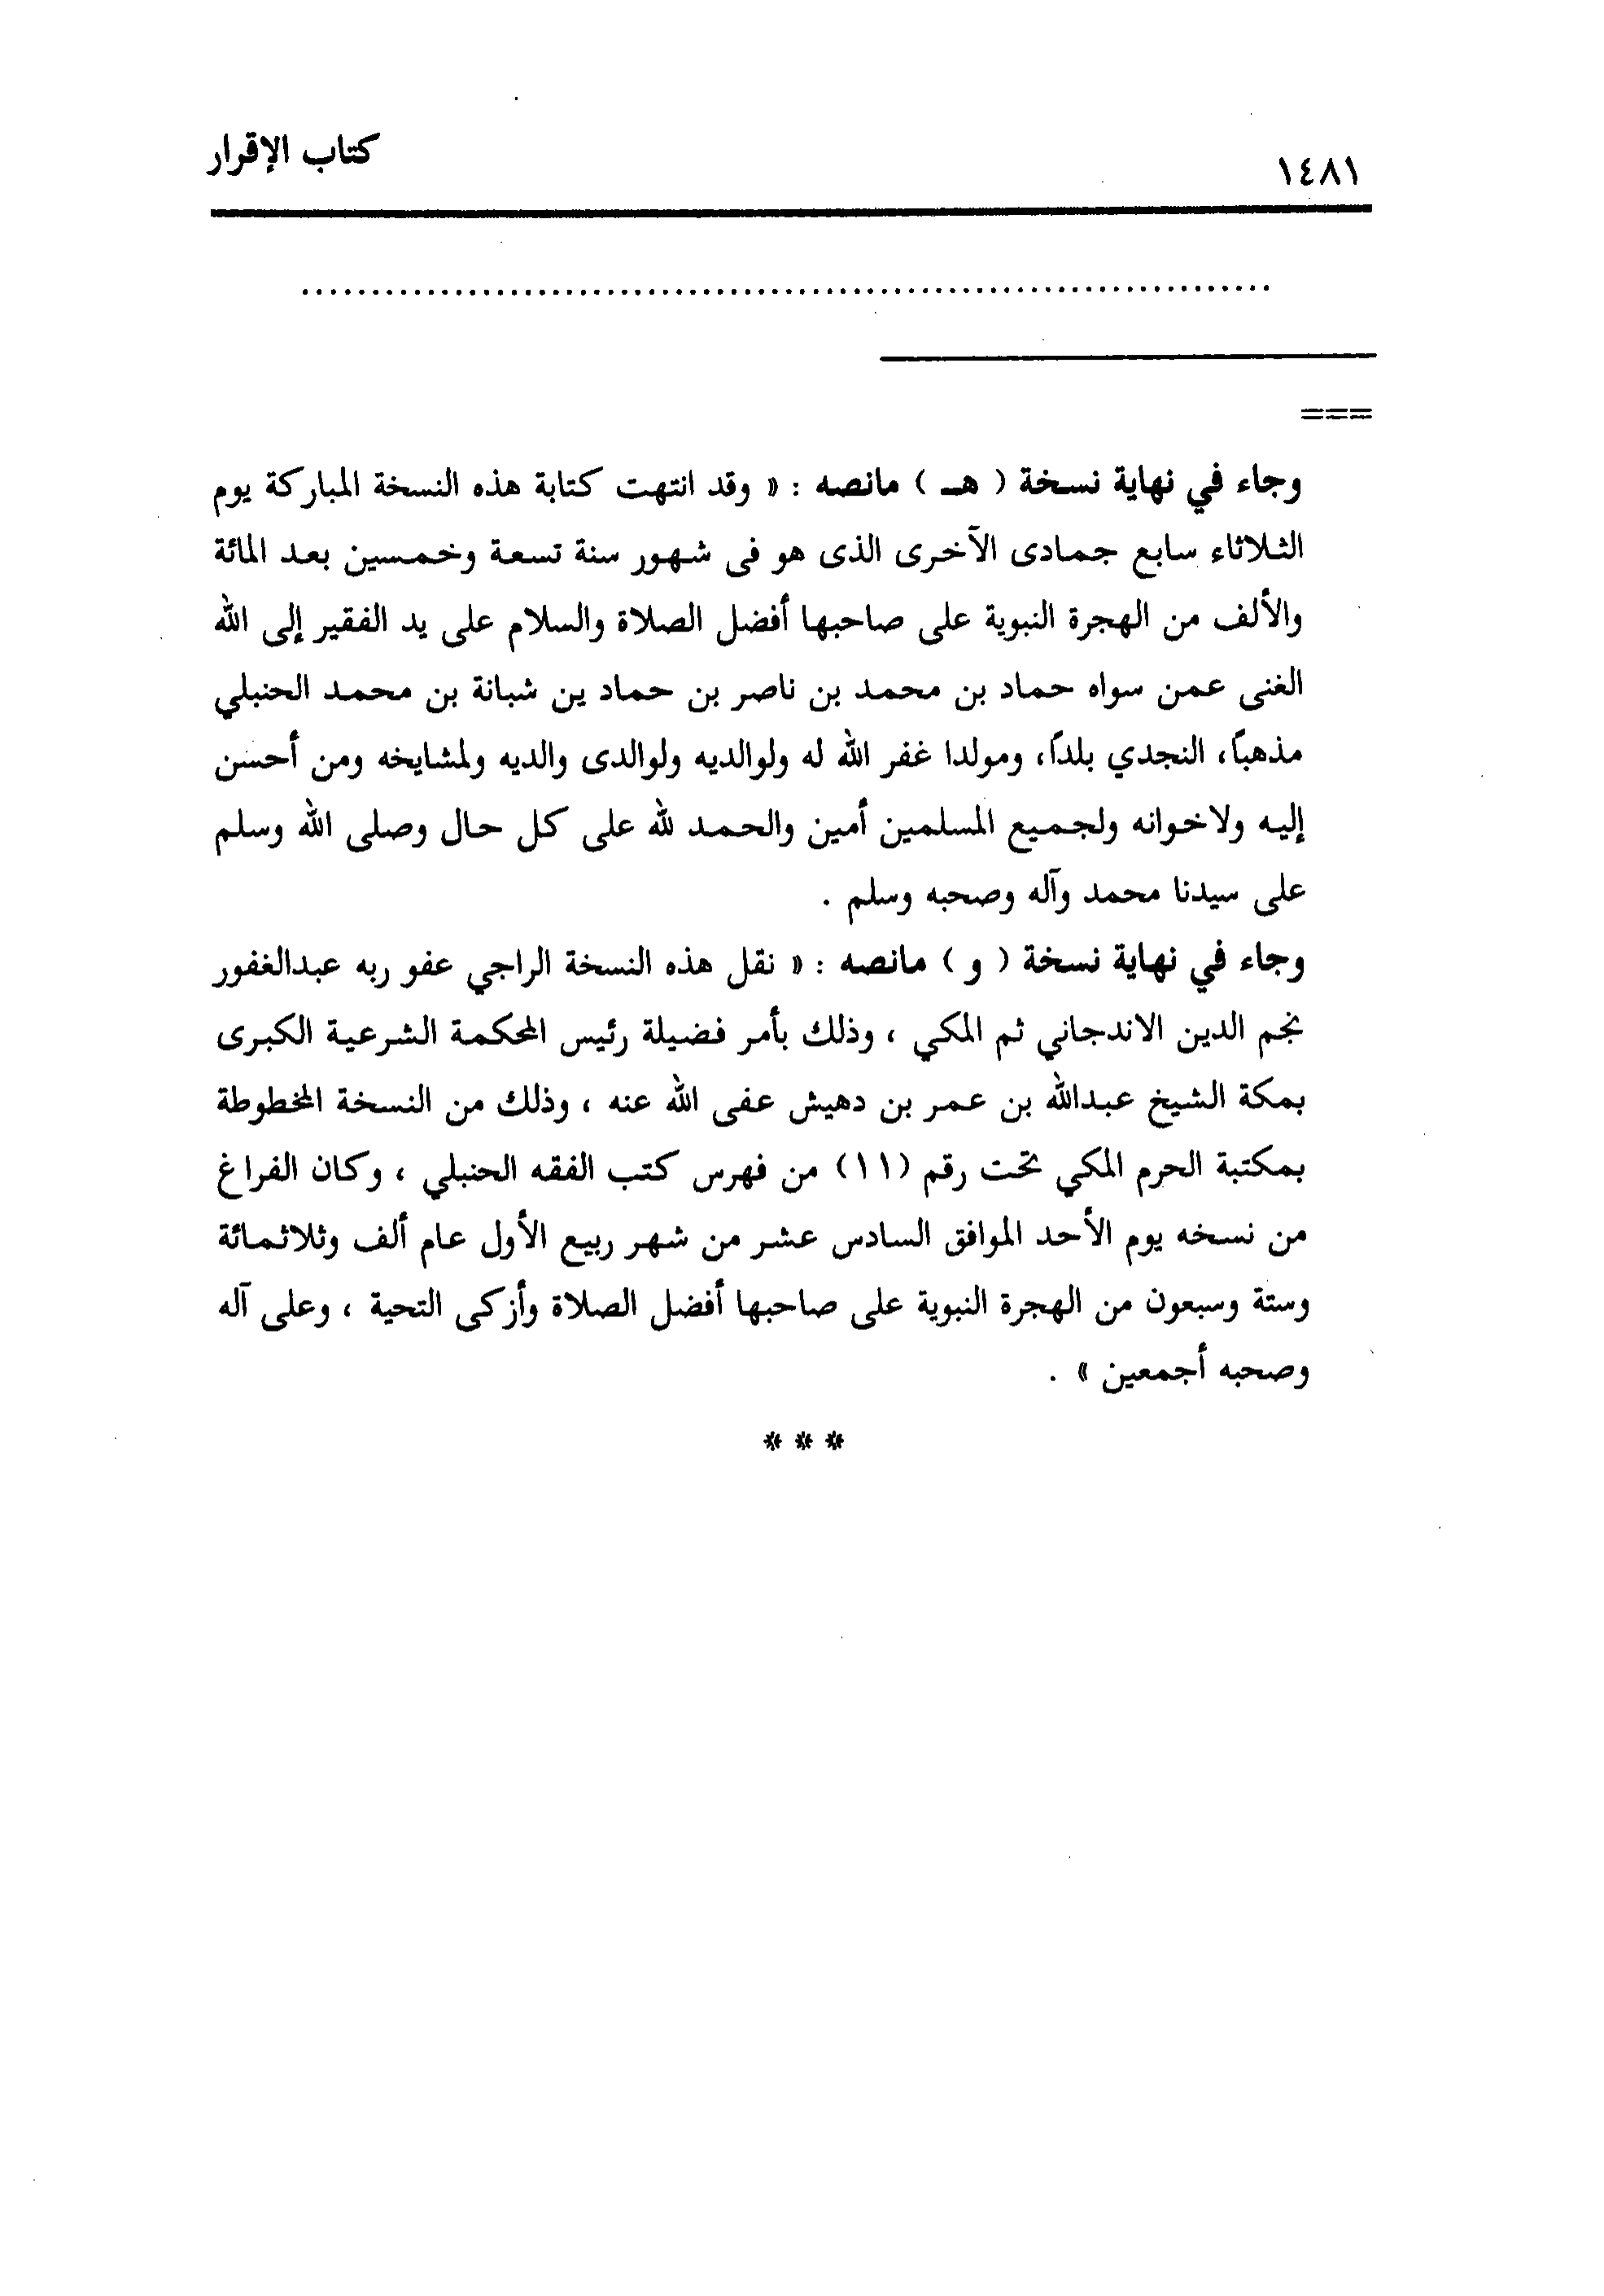 ١٤٨١
كتاب الإقرار
................................................................
===
وجاء في نهاية نسخة ( هـ ) مانصه : « وقد انتهت كتابة هذه النسخة المباركة يوم
الثلاثاء سابع جمادى الآخرى الذى هو فى شهور سنة تسعة وخمسين بعد المائة
والألف من الهجرة النبوية على صاحبها أفضل الصلاة والسلام على يد الفقير إلى الله
الغنى عمن سواه حماد بن محمد بن ناصر بن حماد ين شبانة بن محمد الحنبلي
مذهباً، النجدي بلداً، ومولدا غفر الله له ولوالديه ولوالدى والديه ولمشايخه ومن أحسن
إليه ولاخوانه ولجميع المسلمين أمين والحمد لله على كل حال وصلى الله وسلم
على سيدنا محمد وآله وصحبه وسلم .
وجاء في نهاية نسخة ( و ) مانصه : « نقل هذه النسخة الراجي عفو ربه عبدالغفور
نجم الدين الاندجاني ثم المكي ، وذلك بأمر فضيلة رئيس المحكمة الشرعية الكبرى
بمكة الشيخ عبدالله بن عمر بن دهيش عفى الله عنه ، وذلك من النسخة المخطوطة
بمكتبة الحرم المكي تحت رقم (١١) من فهرس كتب الفقه الحنبلي ، وكان الفراغ
من نسخه يوم الأحد الموافق السادس عشر من شهر ربيع الأول عام ألف وثلاثمائة
وستة وسبعون من الهجرة النبوية على صاحبها أفضل الصلاة وأزكى التحية ، وعلى آله
وصحبه أجمعين » .
* * *